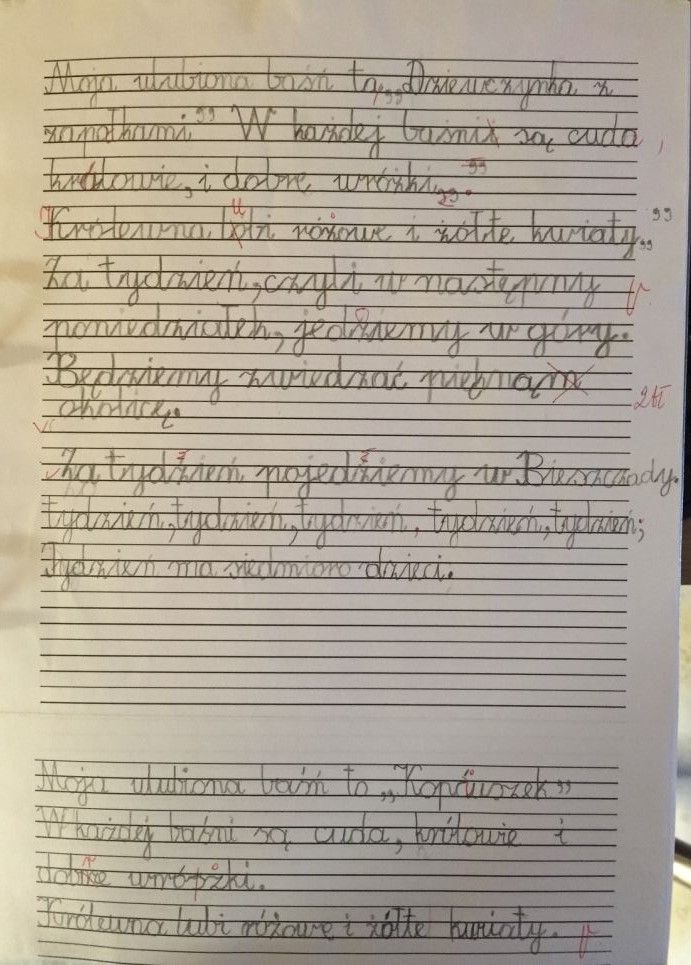 Moja ulubiona baśń to „Dziewczynka z
zapałkami" W każdej baśni są cuda,
królowie, i dobre wróżki.
Królewna lubi różowe i żółte kwiaty."
Za tydzień, czyli w następny
poniedziałek, jedziemy w góry.
Będziemy zwiedzać piękną
okolicę.
2 bł
Za tydzień pojedziemy w Bieszczady.
tydzień, tydzień, tydzień, tydzień, tydzień;
Tydzień ma siedmioro dzieci.
Moja ulubiona baśń to „Kopciuszek"
W każdej baśni są cuda, królowie i
dobre wróżki.
Królewna lubi różowe i żółte kwiaty.